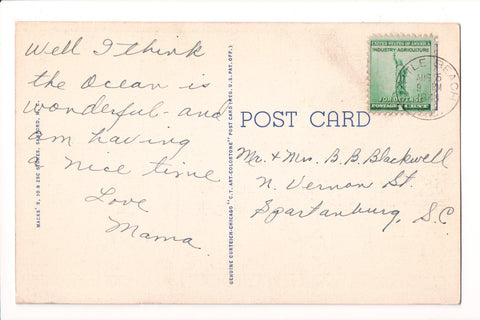 Well I think
the Ocean is
wonderful - and
am having
a nice time
Love
Mama
GENUINE CURTEICH-CHICAGO "C.T. ART-COLORTONE" POST CARD (REG. U.S. PAT. OFF.)
POST CARD
UNITED STATES OF AMERICA
INDUSTRY AGRICULTURE
FOR DEFENSE
POSTAGE 1 CENT
BEACH
AUG
Mr. & Mrs. B. B. Blackwell
N. Vernon St.
Spartanburg, S.C